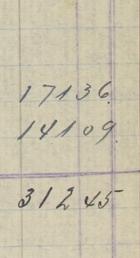 17136
14109
31245